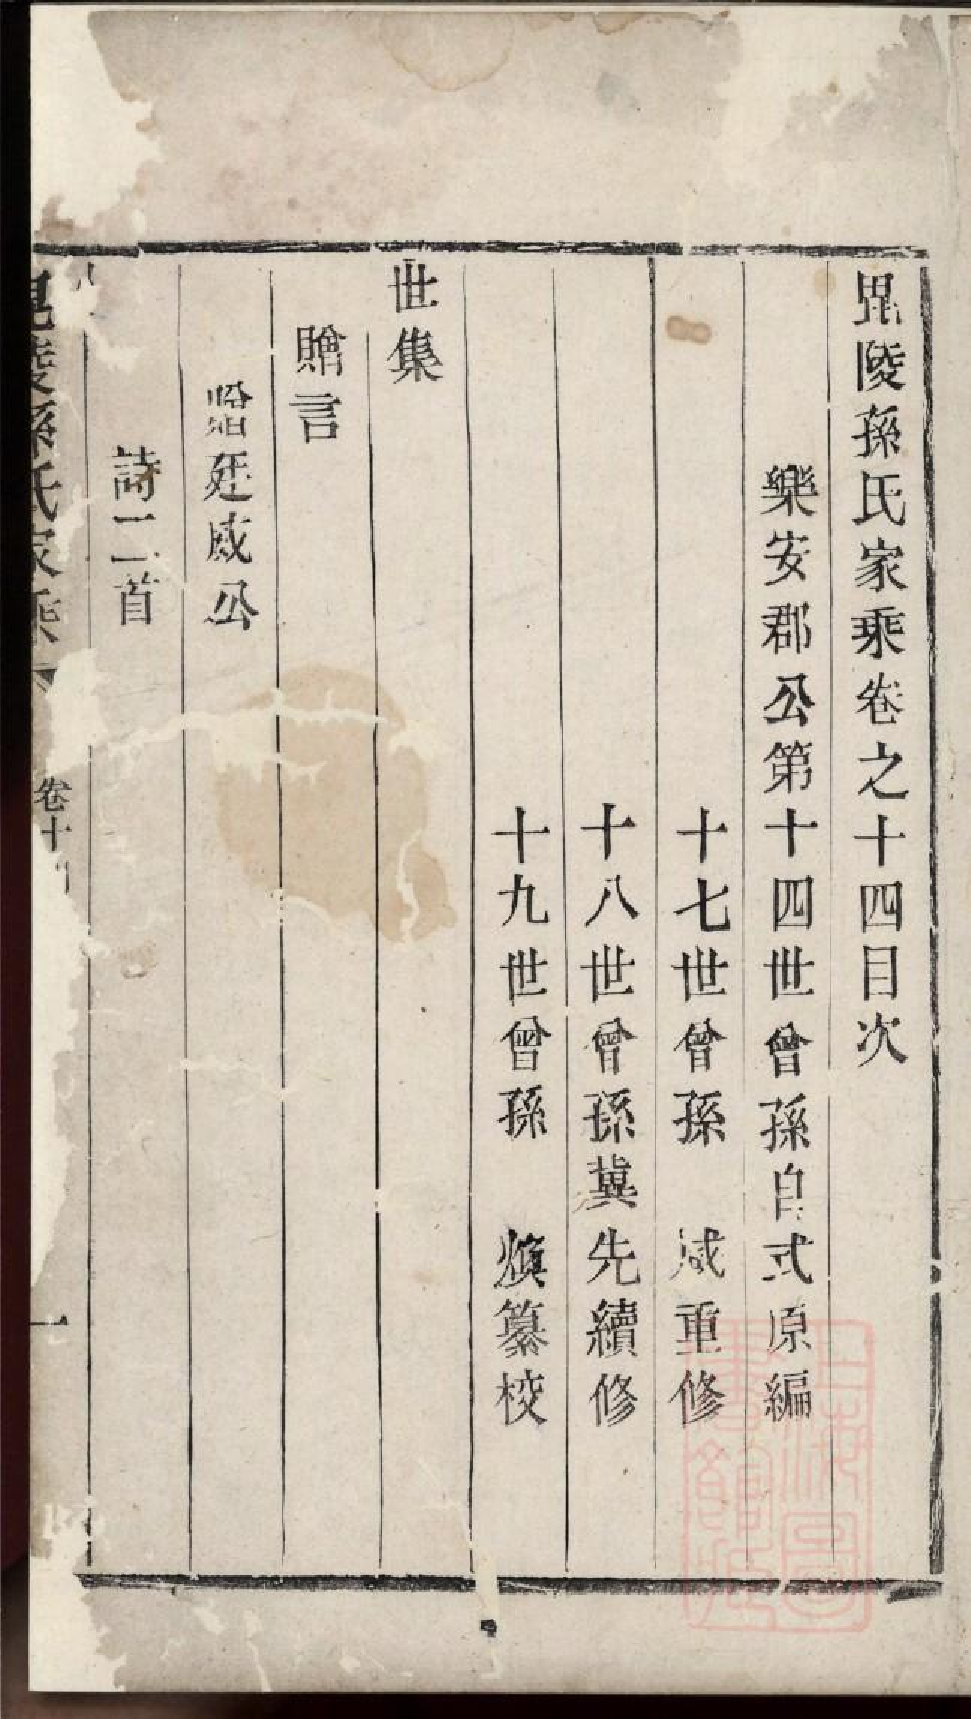 毘陵孫氏家乘卷之十四目次
樂安郡公第十四世曾孫自式原編
十七世曾孫 咸重修
十八世曾孫冀先續修
十九世曾孫 煥纂校
世集
贈言
贈廷威公
詩二首
毘陵孫氏家乘
卷十四
一
上海圖書館藏